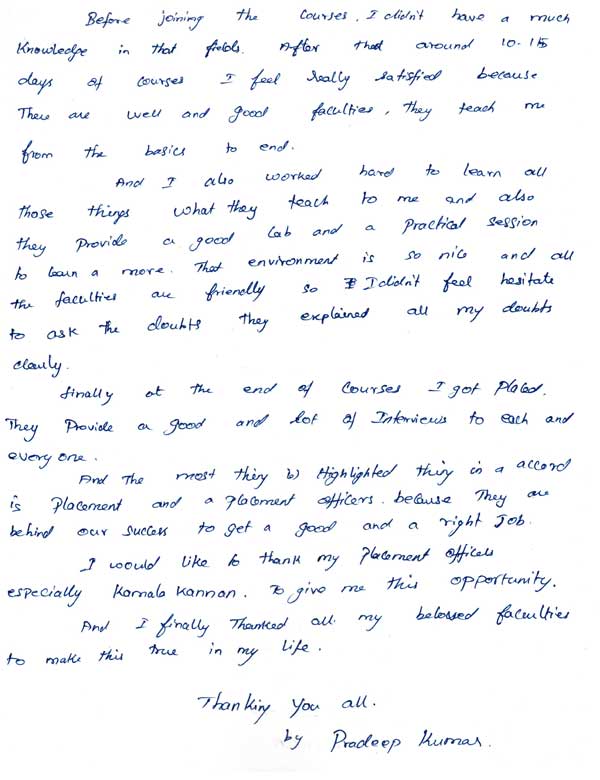 Before joining the courses, I didn't have a much
knowledge in that fields. After that around 10-15
days of courses I feel really satisfied because
There are well and good faculties, they teach me
from the basics to end.
And I also worked hard to learn all
those things what they teach to me and also
they Provide a good Lab and a Practical session
to learn a more. That environment is so nice and all
the faculties are friendly so I didn't feel hesitate
to ask the doubts they explained all my doubts
clearly.
finally at the end of courses I got Placed.
They Provide a good and lot of Interviews to each and
every one.
And The most thing is Highlighted thing in a accord
is Placement and a Placement officers. because They are
behind our success to get a good and a right Job.
I would like to thank my Placement officers
especially Kamala Kannan. To give me this opportunity.
And I finally Thanked all my beloved faculties
to make this true in my life.
Thanking You all.
by Pradeep Kumar.